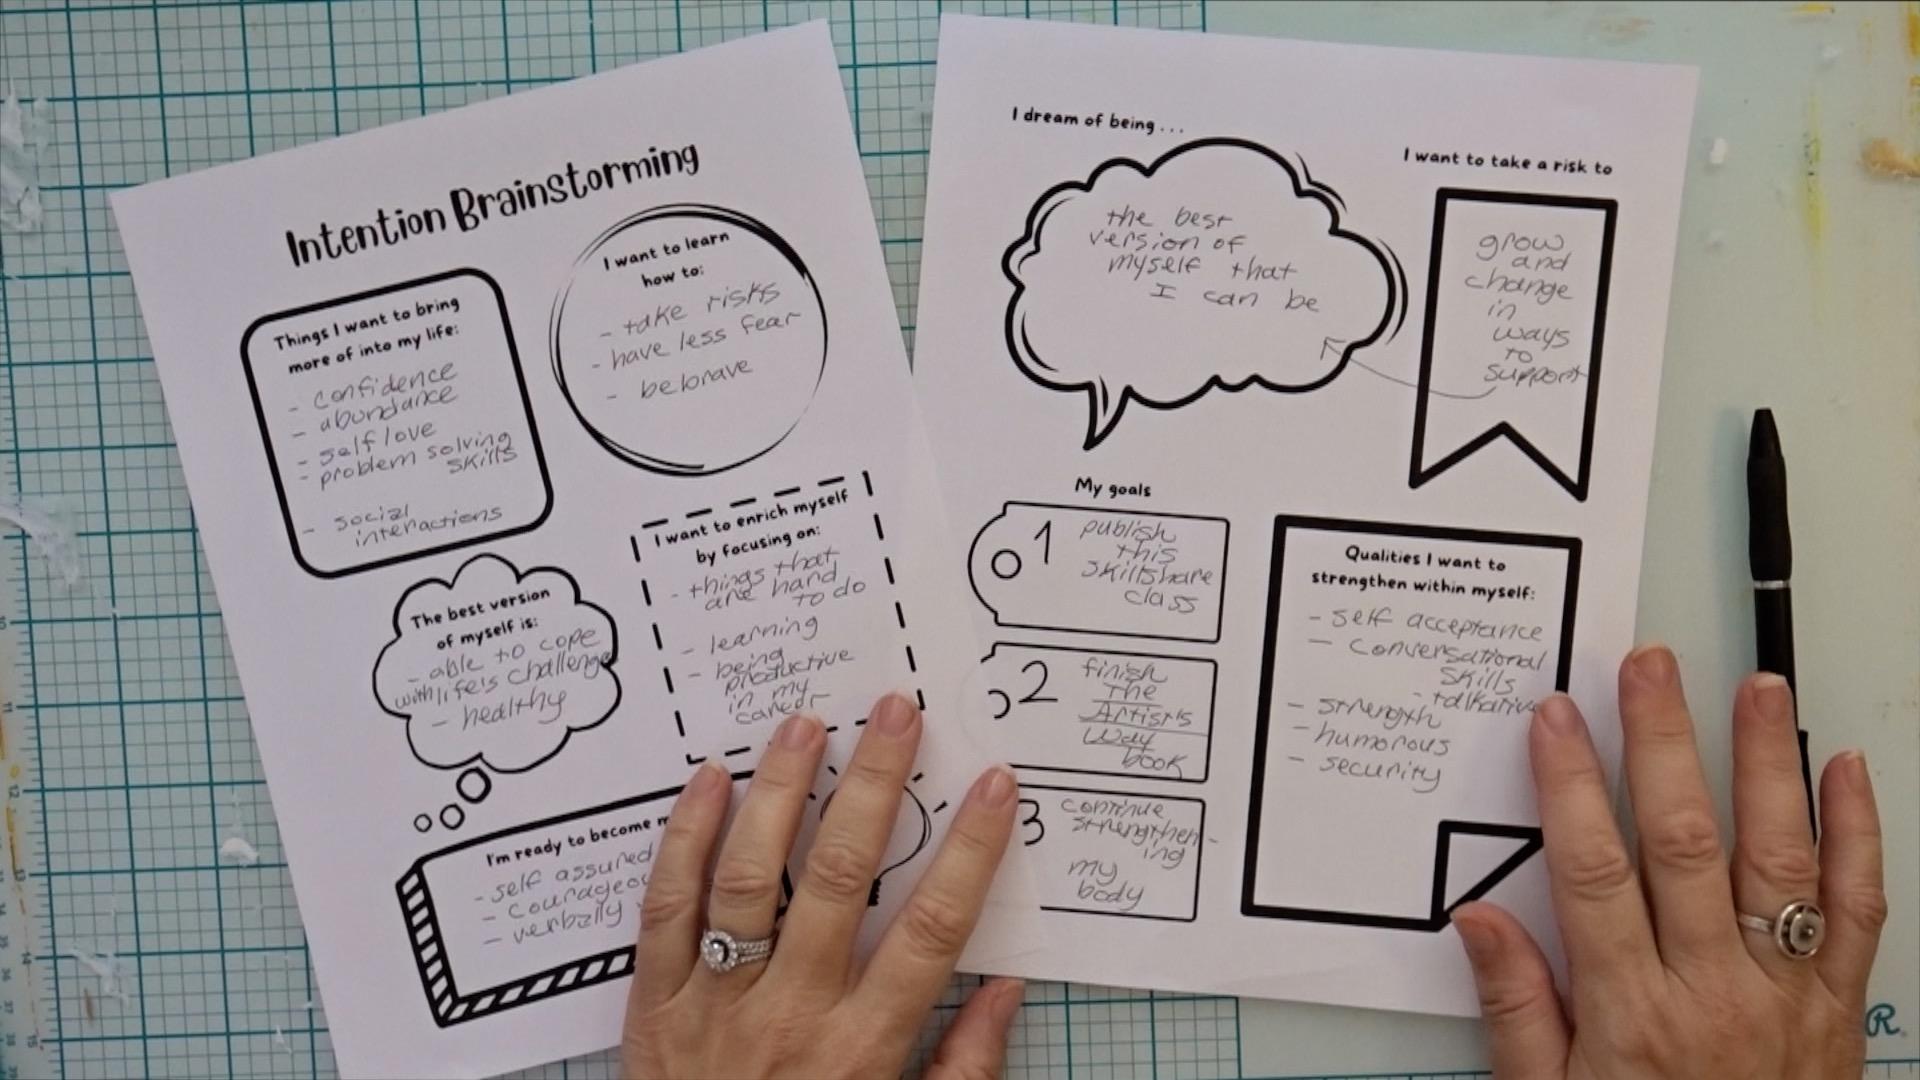 Intention Brainstorming
Things I want to bring
more of into my life:
- confidence
- abundance
- self love
- problem solving
skills
- social
interactions
I want to learn
how to:
- take risks
- have less fear
- be brave
The best version
of myself is:
- able to cope
with life's challenges
- healthy
I want to enrich myself
by focusing on:
- things that
are hard
to do
- learning
- being
productive
in my
career
I'm ready to become
- self assured
- courageou
- verbally
I dream of being ...
the best
version of
myself that
I can be
I want to take a risk to
grow
and
change
in
ways
to
support
My goals
1 publish
this
skillshare
class
2 finish
The
Artist's
Way
book
3 continue
strengthen-
ing
my
body
Qualities I want to
strengthen within myself:
- self acceptance
- conversational
skills
- talkative
- strength
- humorous
- security
R